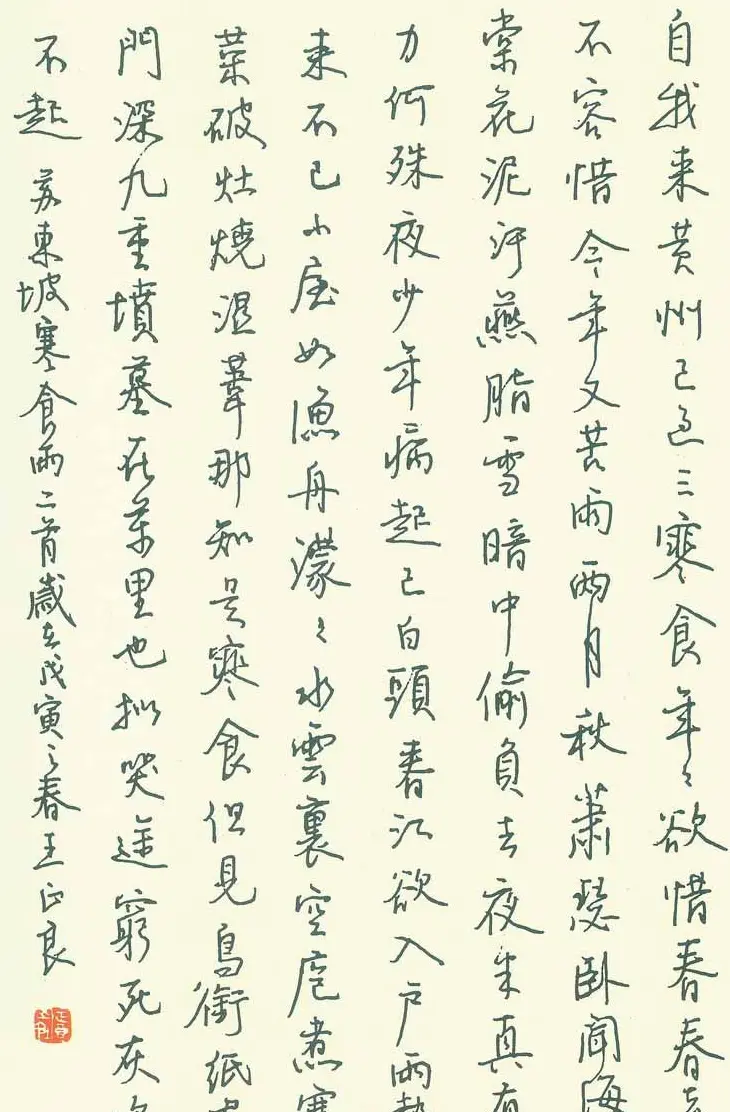 自我来黄州已过三寒食年々欲惜春春去
不容惜今年又苦雨两月秋萧瑟卧闻海
棠花泥汙燕脂雪暗中偷负去夜来真有
力何殊夜少年病起已白頭春江欲入户雨勢
来不已小屋如漁舟濛々水雲裏空庖煮寒
菜破灶燒湿葦那知是寒食但見烏銜纸
門深九重墳墓在萬里也拟哭途窮死灰吹
不起 苏東坡寒食雨二首歲在戊寅之春王正良